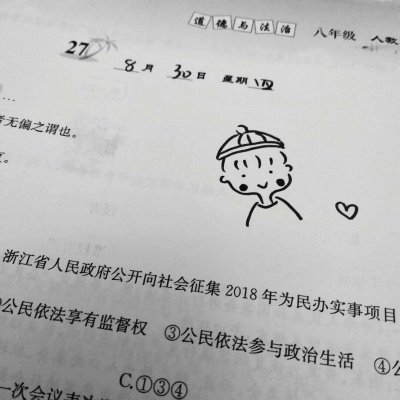 道德与法治 八年级 人教
27 8月30日 星期四
…
者无偏之谓也。
浙江省人民政府公开向社会征集2018年为民办实事项目
公民依法享有监督权 ③公民依法参与政治生活 ④公
C.①③④
一次会议表决